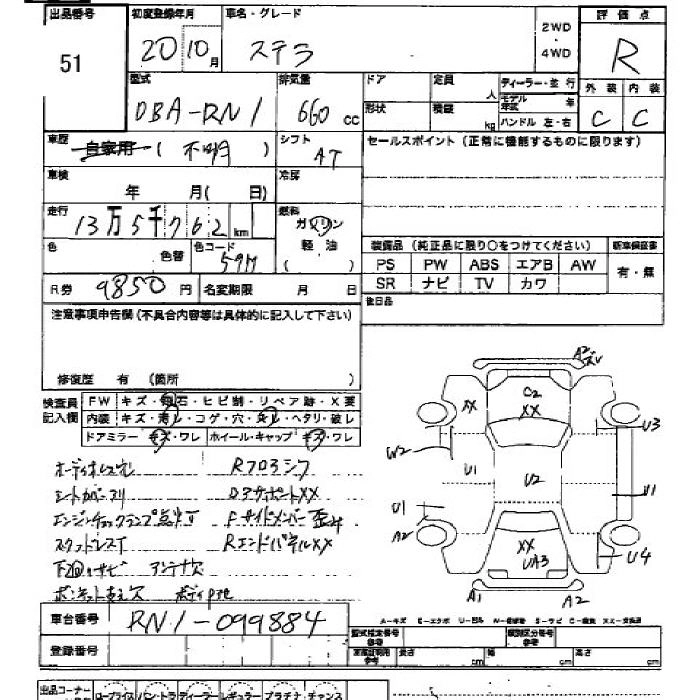 出品番号 初度登録年月 車名・グレード 2WD・4WD 評価点
51 20 10月 ステラ R
型式 排気量 ドア 定員 人 ディーラー・並行 外装 内装
DBA-RN1 660cc 形状 積載 kg モデル年式 年 ハンドル 左・右 C C
車歴 自家用 (不明) シフト AT セールスポイント(正常に機能するものに限ります)
車検 年 月( 日) 冷房
走行 13万5千762km 燃料 ガソリン
色 色替 色コード 59M 軽油 ( ) 装備品(純正品に限り○をつけてください) 新車保証書
PS PW ABS エアB AW 有・無
R券 9850円 名変期限 月 日 SR ナビ TV カワ
注意事項申告欄(不具合内容等は具体的に記入して下さい) 後日品
修復歴 有 (箇所
検査員記入欄 FW キズ・飛石・ヒビ割・リペア跡・X要
内装 キズ・汚レ・コゲ・穴・スレ・ヘタリ・破レ
ドアミラー キズ・ワレ ホイール・キャップ キズ・ワレ
オーディオレス
シートカバースリ
エンジンチェックランプ点灯 Fサイドメンバー
RエンドパネルXX
下回りサビ アンテナ欠
A2 C2 XX XX U3 W2 U1 U2 U1 U1 A2 XX UA3 U4 A1 A2
車台番号 RN1-099884
A-キズ E-エクボ U-凹み W-補修跡 S-サビ C-腐食
登録番号 型式指定番号 参考 類別区分番号 参考
車庫証明用 参考 長さ cm 幅 cm 高さ cm
出品コーナー